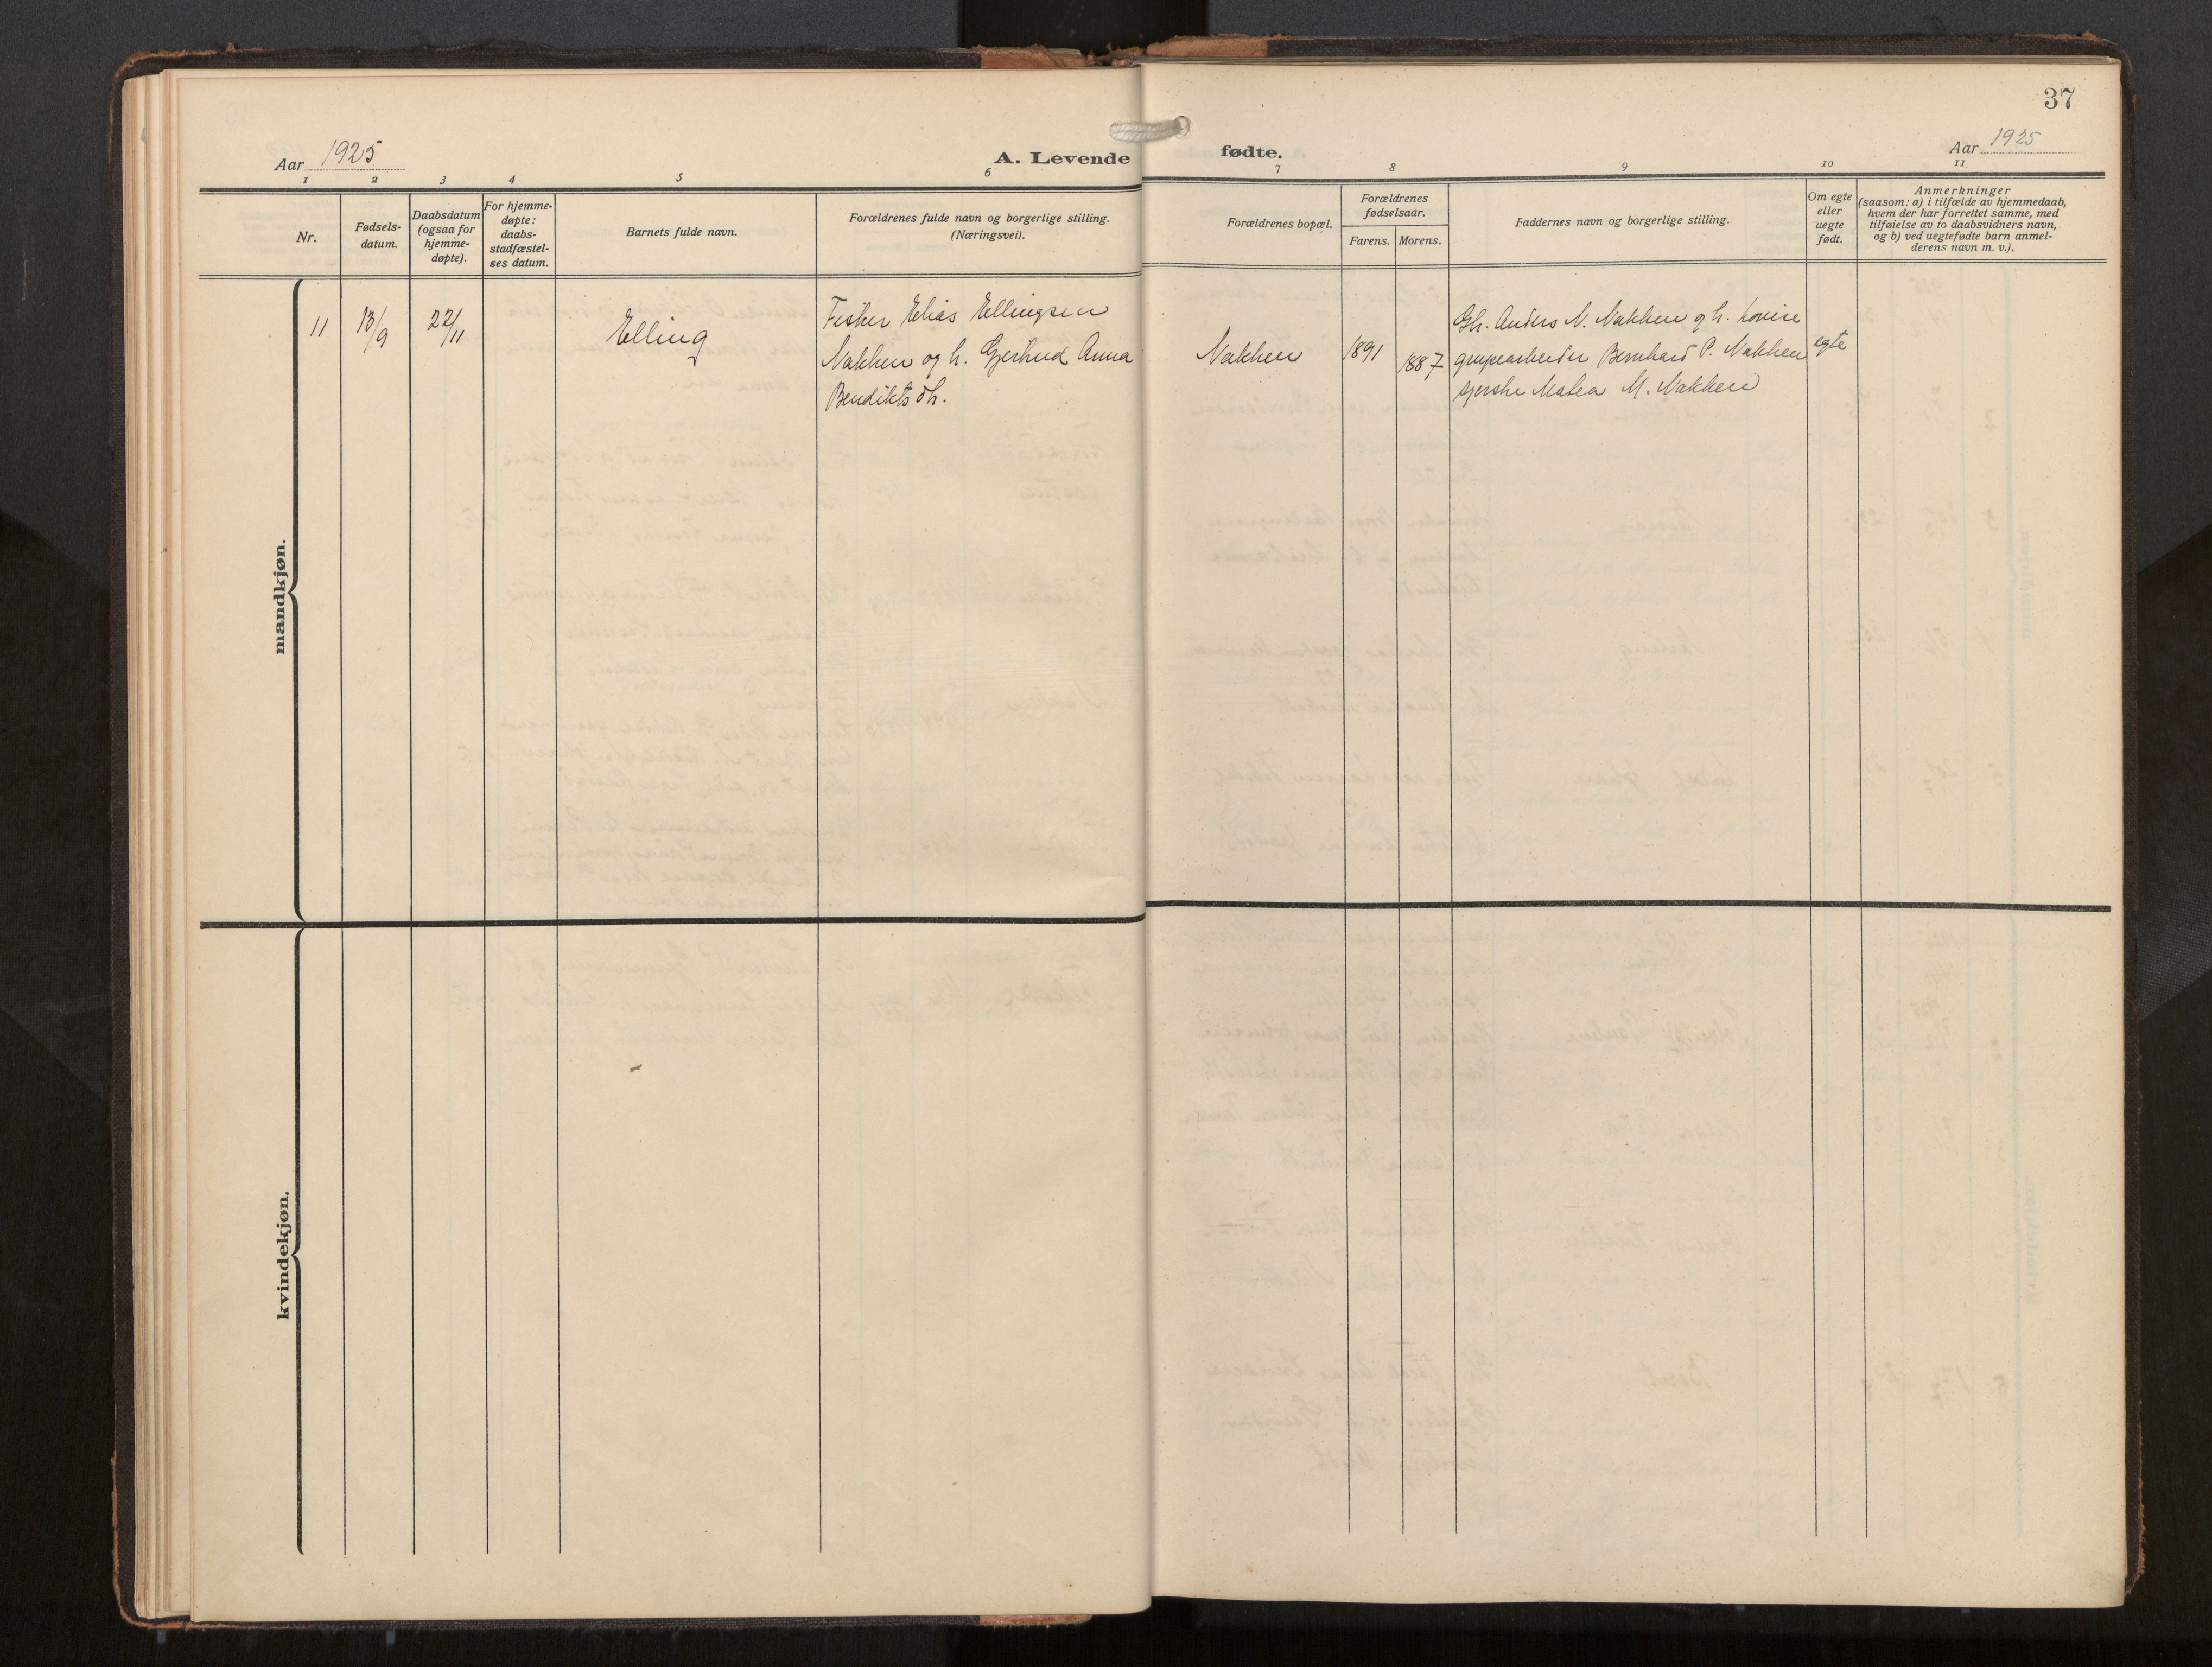 37
Aar 1925
A. Levende fødte.
Aar 1925
1 2 3 4 5 6 7 8 9 10 11
Nr.
Fødsels-
datum.
Daabsdatum
(ogsaa for
hjemme-
døpte).
For hjemme-
døpte:
daabs-
stadfæstel-
ses datum.
Barnets fulde navn.
Forældrenes fulde navn og borgerlige stilling.
(Næringsvei).
Forældrenes bopæl.
Forældrenes
fødselsaar.
Farens. Morens.
Faddernes navn og borgerlige stilling.
Om egte
eller
uegte
født.
Anmerkninger
(saasom: a) i tilfælde av hjemmedaab,
hvem der har forrettet samme, med
tilføielse av to daabsvidners navn,
og b) ved uegtefødte barn anmel-
derens navn m. v.).
mandkjøn.
11
13/9
22/11
Elling
Fisker Elias Ellingsen
Nakken og h. Gjertrud Anna
Bendiktsdh.
Nakken
1891
1887
Gh. Anders N. Nakken og h. Lovise
Bernhard P. Nakken
Matea M. Nakken
egte
kvindekjøn.